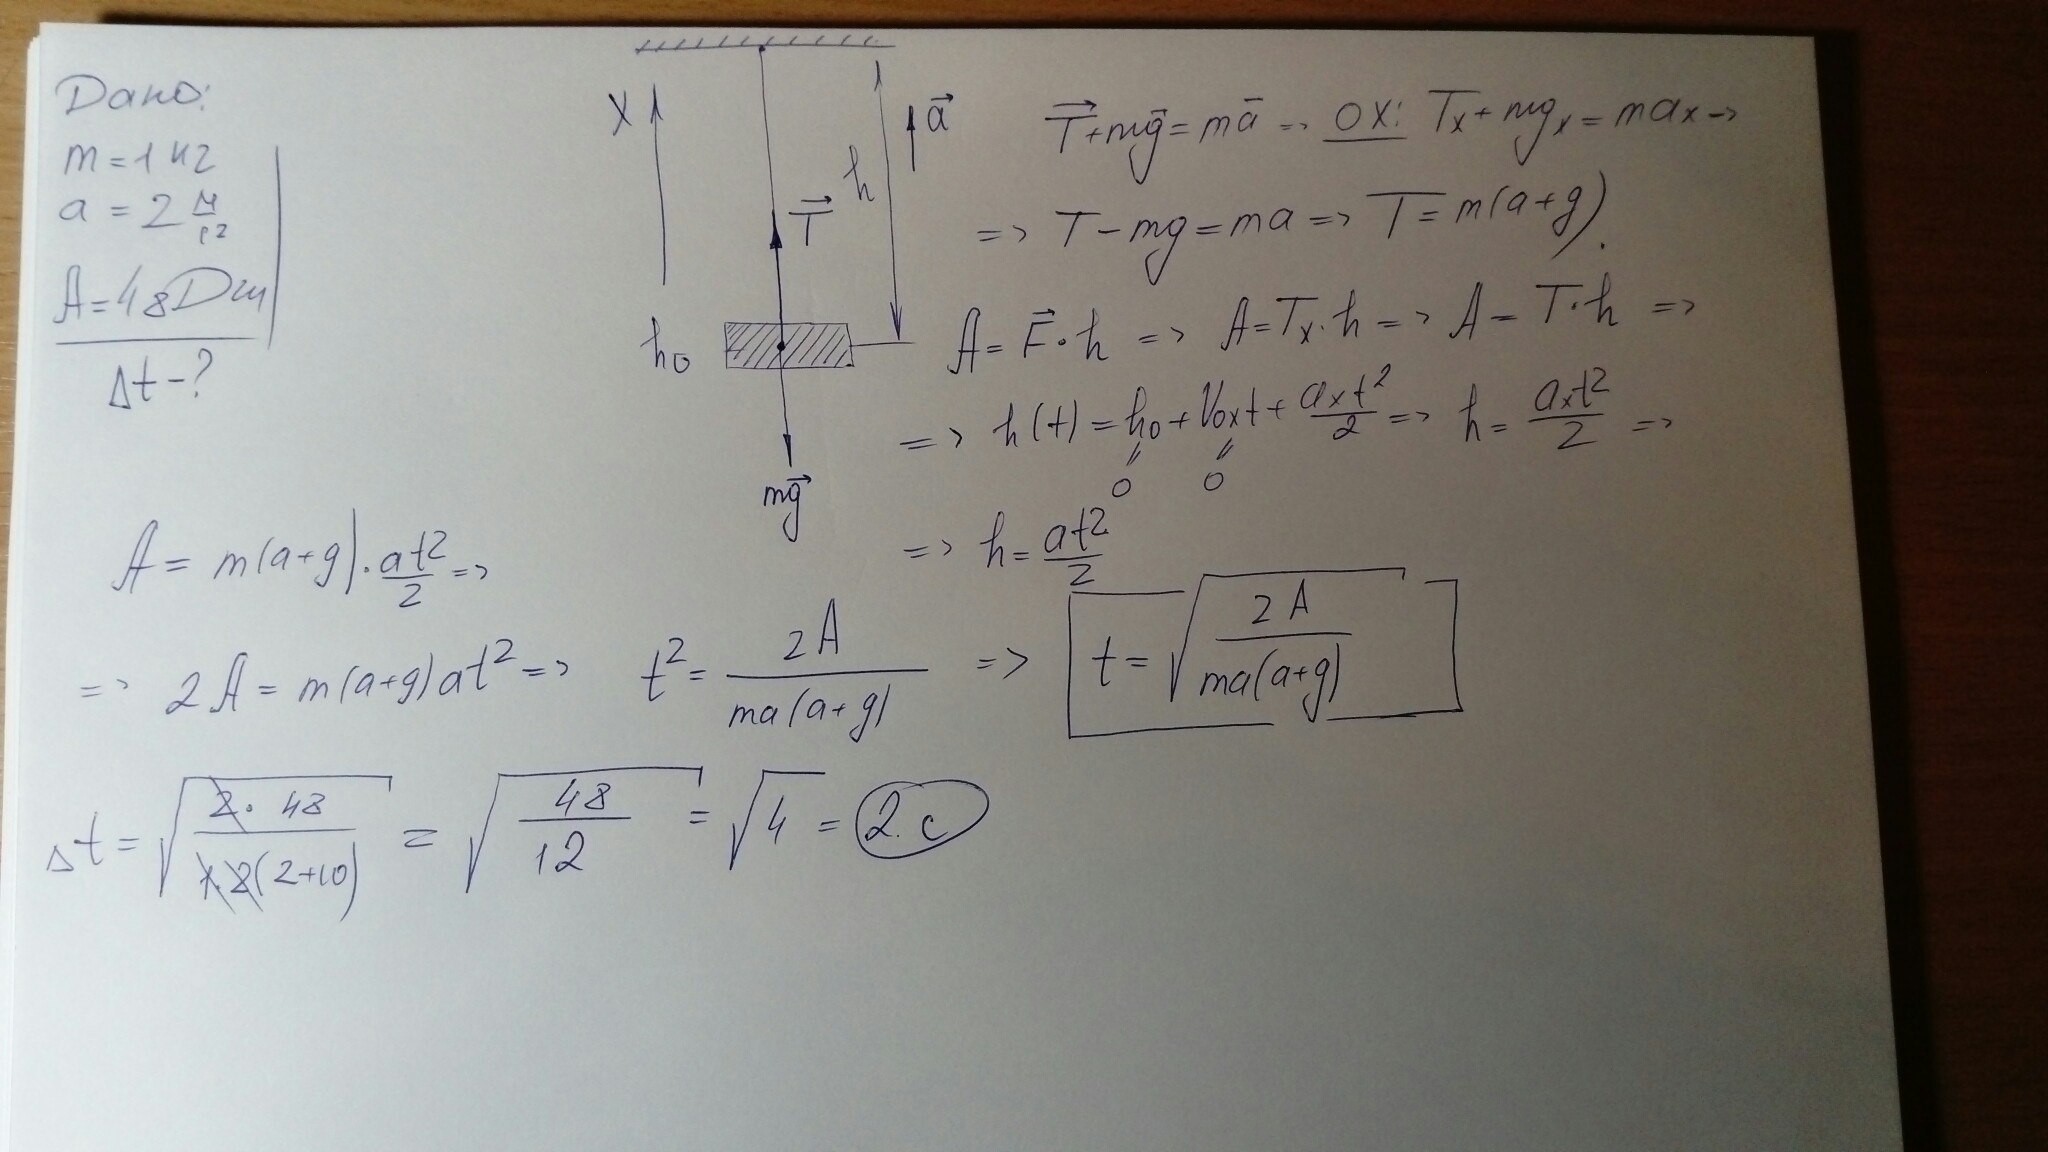 Дано:
m = 1 кг
a = 2 м/с²
A = 48 Дж
Δt - ?
X
a⃗
h
T⃗
h₀
mg⃗
T⃗ + mg⃗ = ma⃗ => OX: Tₓ + mgₓ = maₓ =>
=> T - mg = ma => T = m(a+g).
A = F⃗ · h => A = Tₓ · h => A = T · h =>
=> h(t) = h₀ + V₀ₓt + aₓt²/2 => h = aₓt²/2 =>
" "
0 0
=> h = at²/2
A = m(a+g) · at²/2 =>
=> 2A = m(a+g)at² => t² = 2A/ma(a+g) => t = √(2A/ma(a+g))
Δt = √(2 · 48/1·2(2+10)) = √(48/12) = √4 = 2 с